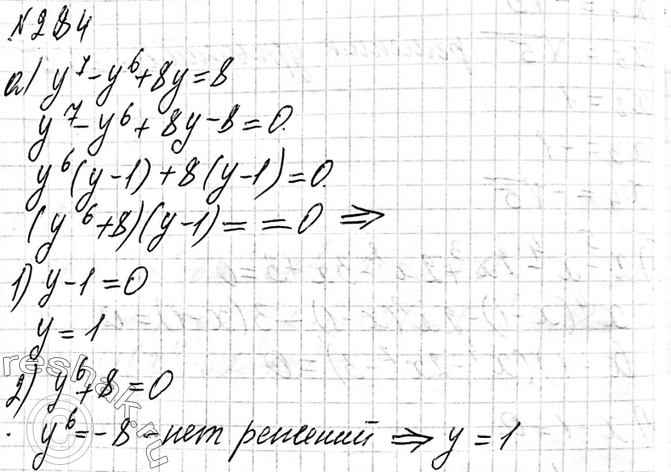 №284
а) y⁷-y⁶+8y=8
y⁷-y⁶+8y-8=0.
y⁶(y-1)+8(y-1)=0.
(y⁶+8)(y-1)= =0 ⇒
1) y-1=0
y=1
2) y⁶+8=0
y⁶=-8 - нет решений ⇒ y=1
reshak.ru